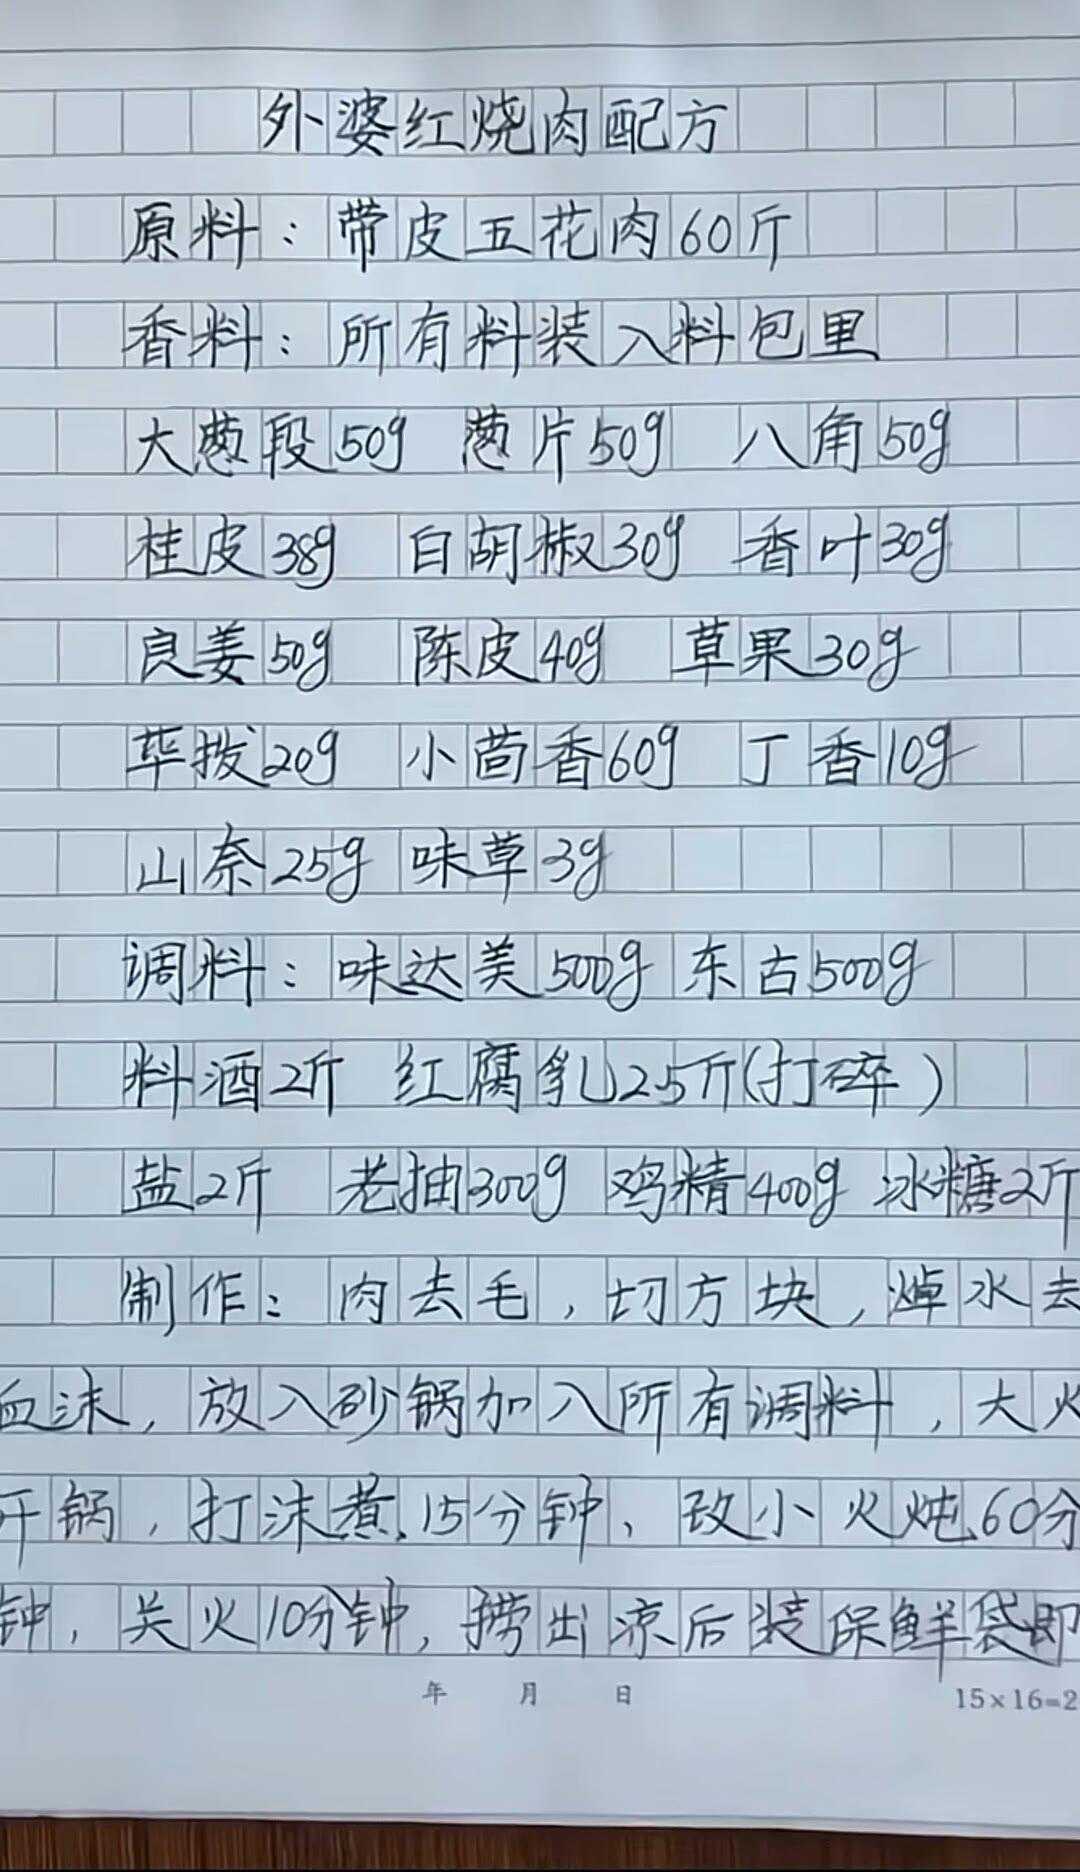 外婆红烧肉配方
原料：带皮五花肉60斤
香料：所有料装入料包里
大葱段50g 葱片50g 八角50g
桂皮38g 白胡椒30g 香叶30g
良姜50g 陈皮40g 草果30g
荜拨20g 小茴香60g 丁香10g
山奈25g 味草3g
调料：味达美500g 东古500g
料酒2斤 红腐乳25斤(打碎)
盐2斤 老抽300g 鸡精400g 冰糖2斤
制作：肉去毛，切方块，焯水去
血沫，放入砂锅加入所有调料，大火
开锅，打沫煮15分钟，改小火炖60分
钟，关火10分钟，捞出凉后装保鲜袋即
年 月 日
15×16=2